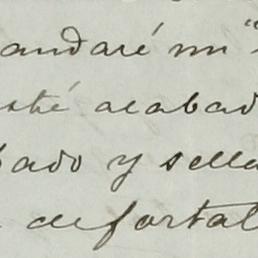 andaré un "
esté acabad
bado y sella
defortal